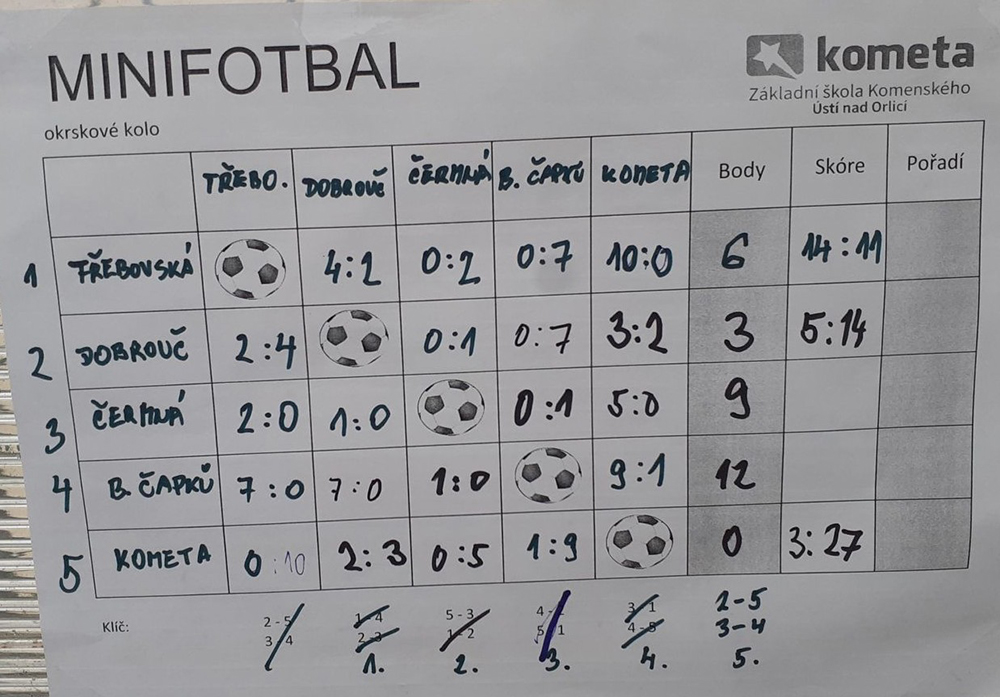 MINIFOTBAL
kometa
Základní škola Komenského
Ústí nad Orlicí
okrskové kolo
TŘEBO. DOBROUČ ČERMNÁ B. ČAPKŮ KOMETA Body Skóre Pořadí
1 TŘEBOVSKÁ 4:2 0:2 0:7 10:0 6 14:11
2 DOBROUČ 2:4 0:1 0:7 3:2 3 5:14
3 ČERMNÁ 2:0 1:0 0:1 5:0 9
4 B. ČAPKŮ 7:0 7:0 1:0 9:1 12
5 KOMETA 0:10 2:3 0:5 1:9 0 3:27
Klíč:
2-5 1-4 5-3 3-1 2-5
3 4 2-3 1-2 5 1 4-5 3-4
1. 2. 3. 4. 5.